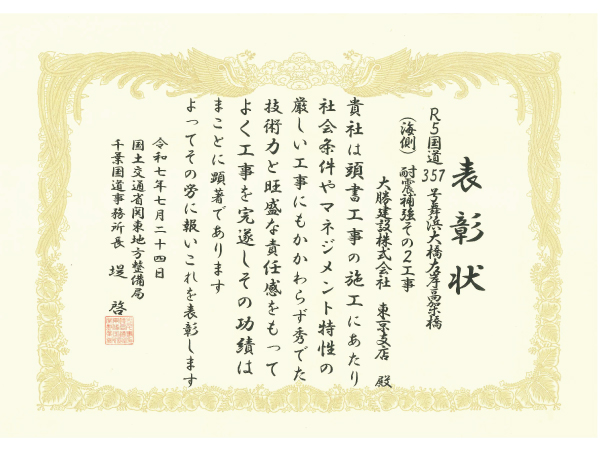 表彰状
R5国道357号舞浜大橋左岸高架橋
(海側) 耐震補強その2工事
大勝建設株式会社 東京支店 殿
貴社は頭書工事の施工にあたり
社会条件やマネジメント特性の
厳しい工事にもかかわらず秀でた
技術力と旺盛な責任感をもって
よく工事を完遂しその功績は
まことに顕著であります
よってその労に報いこれを表彰します
令和七年七月二十四日
国土交通省関東地方整備局
千葉国道事務所長 堤 啓